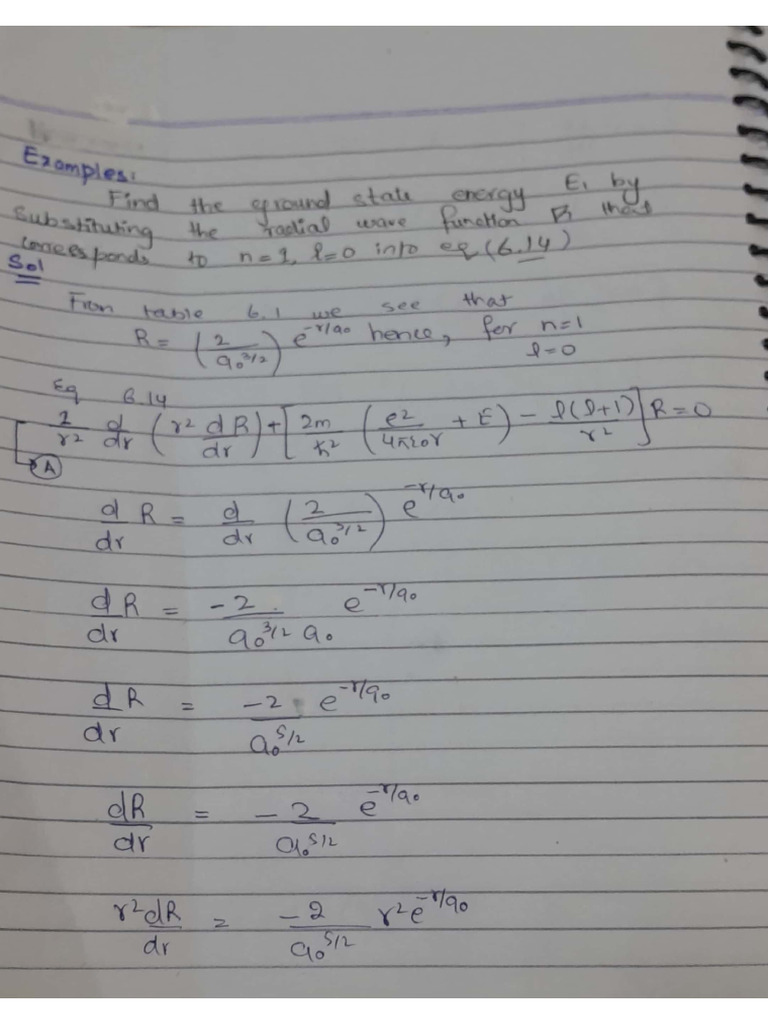 Examples:
Find the ground state energy E₁ by
Substituting the radial wave function R that
corresponds to n=1, l=0 into eq (6.14)
Sol
From table 6.1 we see that
R = (2/a₀^3/2) e^-r/a₀ hence, for n=1
l=0
Eq 6.14
1/r² d/dr (r² dR/dr) + [2m/ħ² (e²/4πε₀r + E) - l(l+1)/r²] R = 0
A
d/dr R = d/dr (2/a₀^3/2) e^-r/a₀
dR/dr = -2/a₀^3/2 a₀ e^-r/a₀
dR/dr = -2/a₀^5/2 e^-r/a₀
dR/dr = -2/a₀^5/2 e^-r/a₀
r²dR/dr = -2/a₀^5/2 r²e^-r/a₀